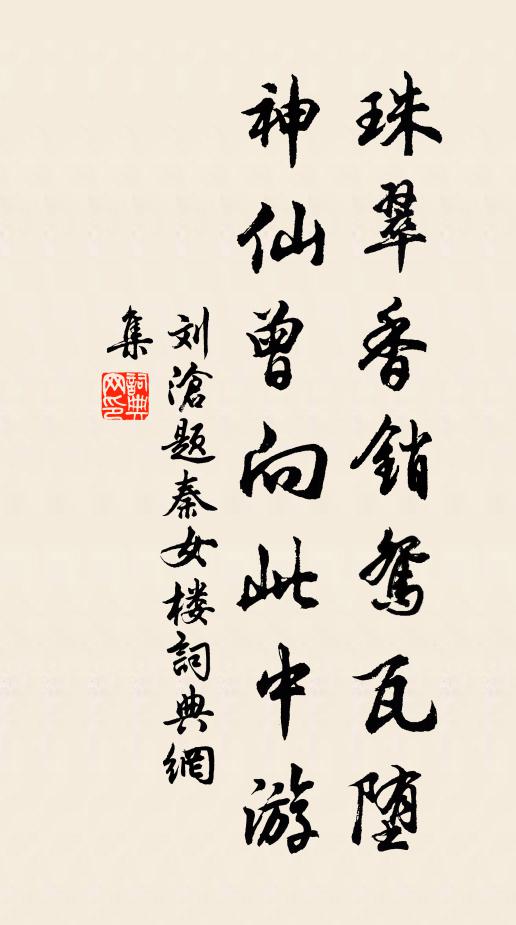 珠翠香销鸳瓦堕
神仙曾向此中游
刘滄题秦女楼詞典網
集
詞典網印